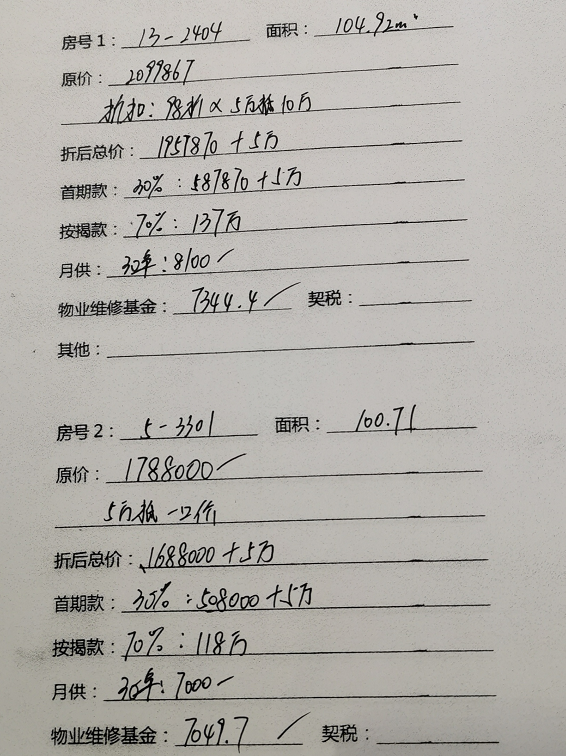 房号1： 13-2404 面积： 104.92m²
原价： 2099867
折扣：98折 × 5万抵10万
折后总价： 1957870 + 5万
首期款： 30%：587870 + 5万
按揭款： 70%：137万
月供： 30年：8100
物业维修基金： 7344.4 契税：
其他：
房号2： 5-3301 面积： 100.71
原价： 1788000
5万抵 一口价
折后总价： 1688000 + 5万
首期款： 30%：508000 + 5万
按揭款： 70%：118万
月供： 30年：7000
物业维修基金： 7049.7 契税：